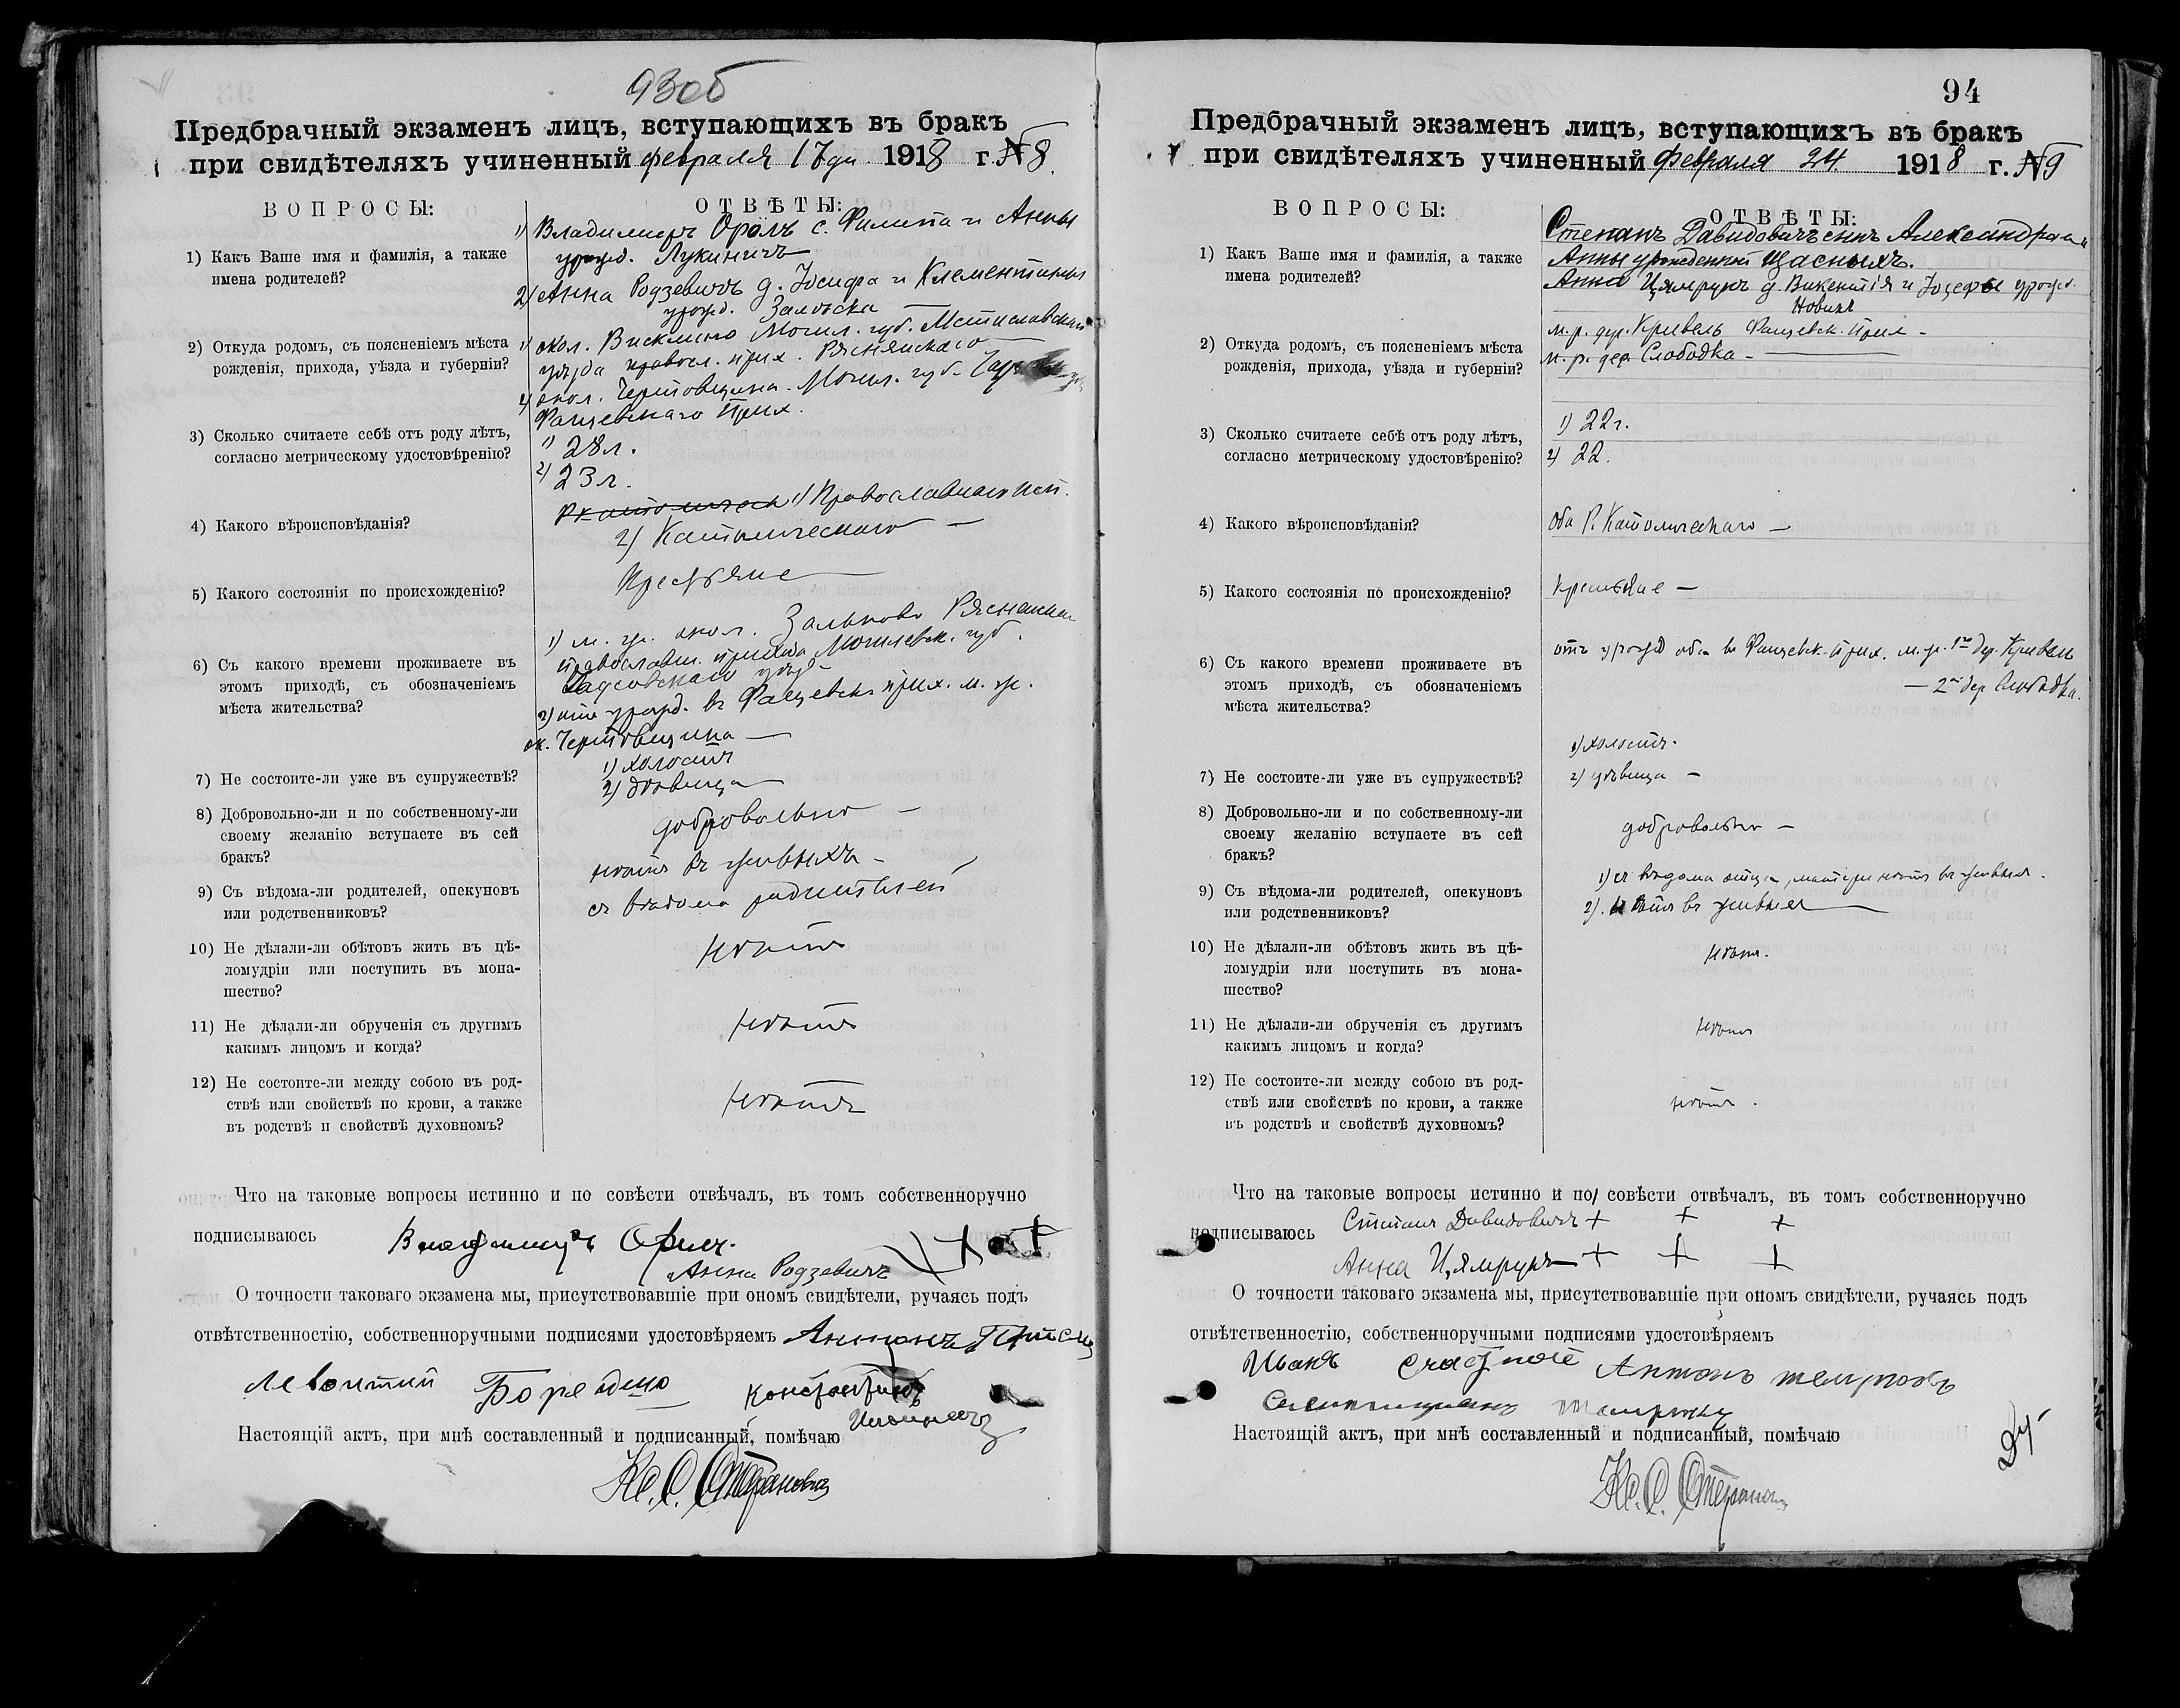 93об
Предбрачный экзаменъ лицъ, вступающихъ въ бракъ
при свидѣтеляхъ учиненный февраля 17 дн. 1918 г. №8.
ВОПРОСЫ:
ОТВѢТЫ:
1) Какъ Ваше имя и фамилія, а также
имена родителей?
1) Владимиръ Орёлъ с. Филипа и Анны
урожд. Лукиничъ
2) Анна Родзевичъ д. Іосифа и Клементины
урожд. Залѣска
2) Откуда родомъ, съ поясненіемъ мѣста
рожденія, прихода, уѣзда и губерніи?
1) окол. Могил. губ. Мстиславскаго
уѣзда правосл. прих. Ряснянскаго
2) окол. Чертовщина Могил. губ.
Фащевскаго Прих.
3) Сколько считаете себѣ отъ роду лѣтъ,
согласно метрическому удостовѣренію?
1) 28 л.
2) 23 л.
4) Какого вѣроисповѣданія?
1) Православнаго исп.
2) Католическаго —
5) Какого состоянія по происхожденію?
Крестьяне —
6) Съ какого времени проживаете въ
этомъ приходѣ, съ обозначеніемъ
мѣста жительства?
1) м. ж. окол. Зальково Ряснянска
православн. прихода Могилевск. губ.
уѣзд
2) отъ урожд. въ Фащевскъ прих. м. ж.
ок. Чертовщина —
7) Не состоите-ли уже въ супружествѣ?
1) холостъ
2) дѣвица —
8) Добровольно-ли и по собственному-ли
своему желанію вступаете въ сей
бракъ?
добровольно —
9) Съ вѣдома-ли родителей, опекуновъ
или родственниковъ?
нѣтъ въ живыхъ —
съ вѣдома родителей
10) Не дѣлали-ли обѣтовъ жить въ цѣ-
ломудріи или поступить въ мона-
шество?
нѣтъ
11) Не дѣлали-ли обрученія съ другимъ
какимъ лицомъ и когда?
нѣтъ
12) Не состоите-ли между собою въ род-
ствѣ или свойствѣ по крови, а также
въ родствѣ и свойствѣ духовномъ?
нѣтъ
Что на таковые вопросы истинно и по совѣсти отвѣчалъ, въ томъ собственноручно
подписываюсь Владимиръ Орелъ.
Анна Родзевичъ + + +
О точности таковаго экзамена мы, присутствовавшіе при ономъ свидѣтели, ручаясь подъ
отвѣтственностію, собственноручными подписями удостовѣряемъ Антонъ
Левонтий Борейшо Константинъ
Настоящій актъ, при мнѣ составленный и подписанный, помѣчаю
Кс. С.
94
Предбрачный экзаменъ лицъ, вступающихъ въ бракъ
при свидѣтеляхъ учиненный февраля 24. 1918 г. №9
ВОПРОСЫ:
ОТВѢТЫ:
1) Какъ Ваше имя и фамилія, а также
имена родителей?
Степанъ Давидовичъ сынъ Александра и
Анны урожденной Щасныхъ.
Анна Цямрукъ д. Викентія и Іозефы урожд.
Новикъ
2) Откуда родомъ, съ поясненіемъ мѣста
рожденія, прихода, уѣзда и губерніи?
м. р. дер. Кривель Фащевск. Прих —
м. р. дер. Слободка — —
3) Сколько считаете себѣ отъ роду лѣтъ,
согласно метрическому удостовѣренію?
1) 22 г.
2) 22.
4) Какого вѣроисповѣданія?
Оба Р. Католическаго —
5) Какого состоянія по происхожденію?
Крестьяне —
6) Съ какого времени проживаете въ
этомъ приходѣ, съ обозначеніемъ
мѣста жительства?
отъ урожд оба въ Фащевск. прих. м. ж. 1й дер. Кривель
— 2й дер Слободка.
7) Не состоите-ли уже въ супружествѣ?
1) холостъ.
2) дѣвица —
8) Добровольно-ли и по собственному-ли
своему желанію вступаете въ сей
бракъ?
добровольно —
9) Съ вѣдома-ли родителей, опекуновъ
или родственниковъ?
1) съ вѣдома отца, матери нѣтъ въ живыхъ.
2). нѣтъ въ живыхъ —
10) Не дѣлали-ли обѣтовъ жить въ цѣ-
ломудріи или поступить въ мона-
шество?
нѣтъ.
11) Не дѣлали-ли обрученія съ другимъ
какимъ лицомъ и когда?
нѣтъ
12) Не состоите-ли между собою въ род-
ствѣ или свойствѣ по крови, а также
въ родствѣ и свойствѣ духовномъ?
нѣтъ.
Что на таковые вопросы истинно и по совѣсти отвѣчалъ, въ томъ собственноручно
подписываюсь Степанъ Давидовичъ + + +
Анна Цямрукъ + + +
О точности таковаго экзамена мы, присутствовавшіе при ономъ свидѣтели, ручаясь подъ
отвѣтственностію, собственноручными подписями удостовѣряемъ
Иванъ Антонъ
Настоящій актъ, при мнѣ составленный и подписанный, помѣчаю
Кс. С.